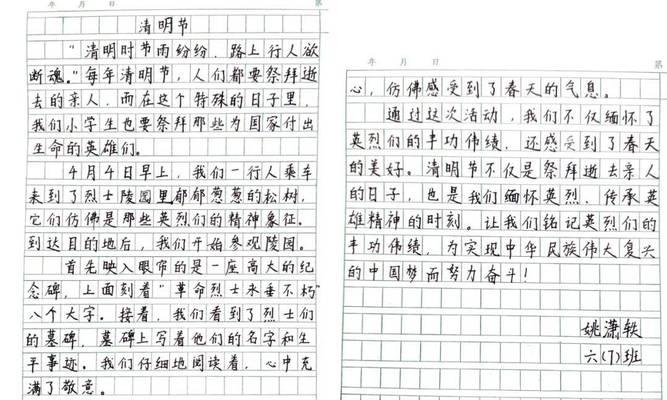 年 月 日 第
清明节
“清明时节雨纷纷，路上行人欲
断魂。”每年清明节，人们都要祭拜逝
去的亲人，而在这个特殊的日子里，
我们小学生也要祭拜那些为国家付出
生命的英雄们。
4月4日早上，我们一行人乘车
来到了烈士陵园里郁郁葱葱的松树，
它们仿佛是那些英烈们的精神象征。
到达目的地后，我们开始参观陵园。
首先映入眼帘的是一座高大的纪
念碑，上面刻着“革命烈士永垂不朽”
八个大字。接着，我们看到了烈士们
的墓碑，墓碑上写着他们的名字和生
平事迹。我们仔细地阅读着，心中充
满了敬意。
年 月 日 第
心，仿佛感受到了春天的气息。
通过这次活动，我们不仅缅怀了
英烈们的丰功伟绩，还感受到了春天
的美好。清明节不仅是祭拜逝去亲人
的日子，也是我们缅怀英烈、传承英
雄精神的时刻。让我们铭记英烈们的
丰功伟绩，为实现中华民族伟大复兴
的中国梦而努力奋斗！
姚潇轶
六(7)班